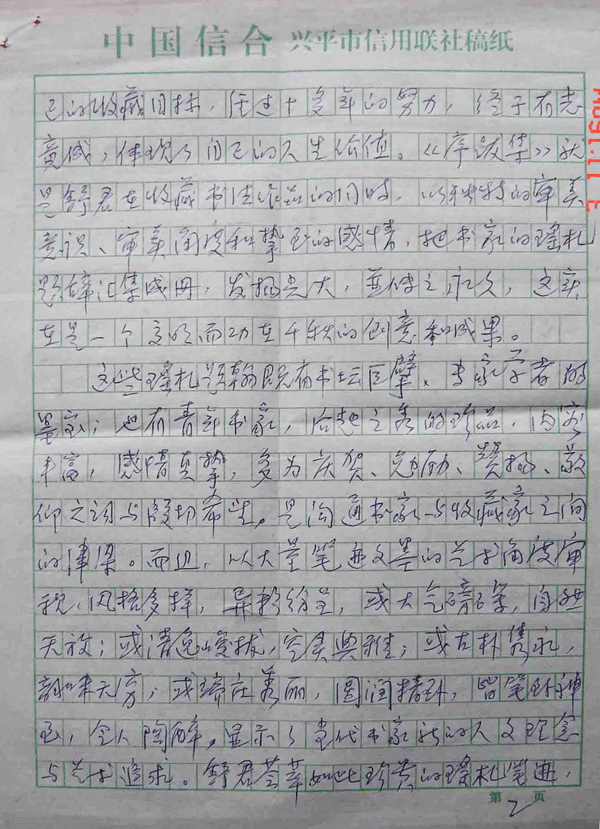 中国信合 兴平市信用联社稿纸
己的收藏目标，经过十多年的努力，终于有志
竟成，体现了自己的人生价值。《序跋集》就
是舒君在收藏书法作品的同时，以独特的审美
意识、审美角度和挚至的感情，把书家的瑶札
题辞汇集成册，发扬光大，並传之永久，这实
在是一个高明而功在千秋的创意和成果。
这些瑶札题翰既有书坛巨擘、专家学者的
墨宝；也有青年书家，后起之秀的珍品，内容
丰富，感情真挚，多为庆贺、勉励、赞扬、敬
仰之词与殷切希望。是沟通书家与收藏家之间
的津梁。而且，以大量笔迹文墨的艺术角度审
视，风格多样，异彩纷呈，或大气磅礴，自然
天放；或清逸峻拔，空灵典雅；或古朴隽永，
韵味无穷；或端庄秀丽，圆润精妙，皆笔到神
至，令人陶醉。显示了当代书家新的人文理念
与艺术追求。舒君荟萃如此珍贵的瑶札笔迹，
第2页